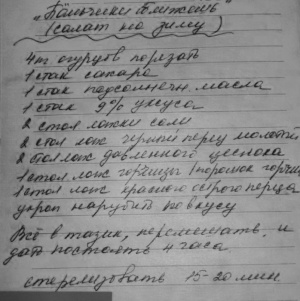 "Пальчики оближешь"
(салат на зиму)
4 кг огурцов порезать
1 стак сахара
1 стак подсолнечн. масла
1 стак 9% уксуса
2 стол ложки соли
2 стол лож черный перец молотый
2 стол лож давленного чеснока
1 стол лож горчицы (порошок горчиц
1 стол лож красного острого перца
укроп нарубить по вкусу
Всё в тазик, перемешать, и
дать постоять 4 часа
стерелизовать 15-20 мин